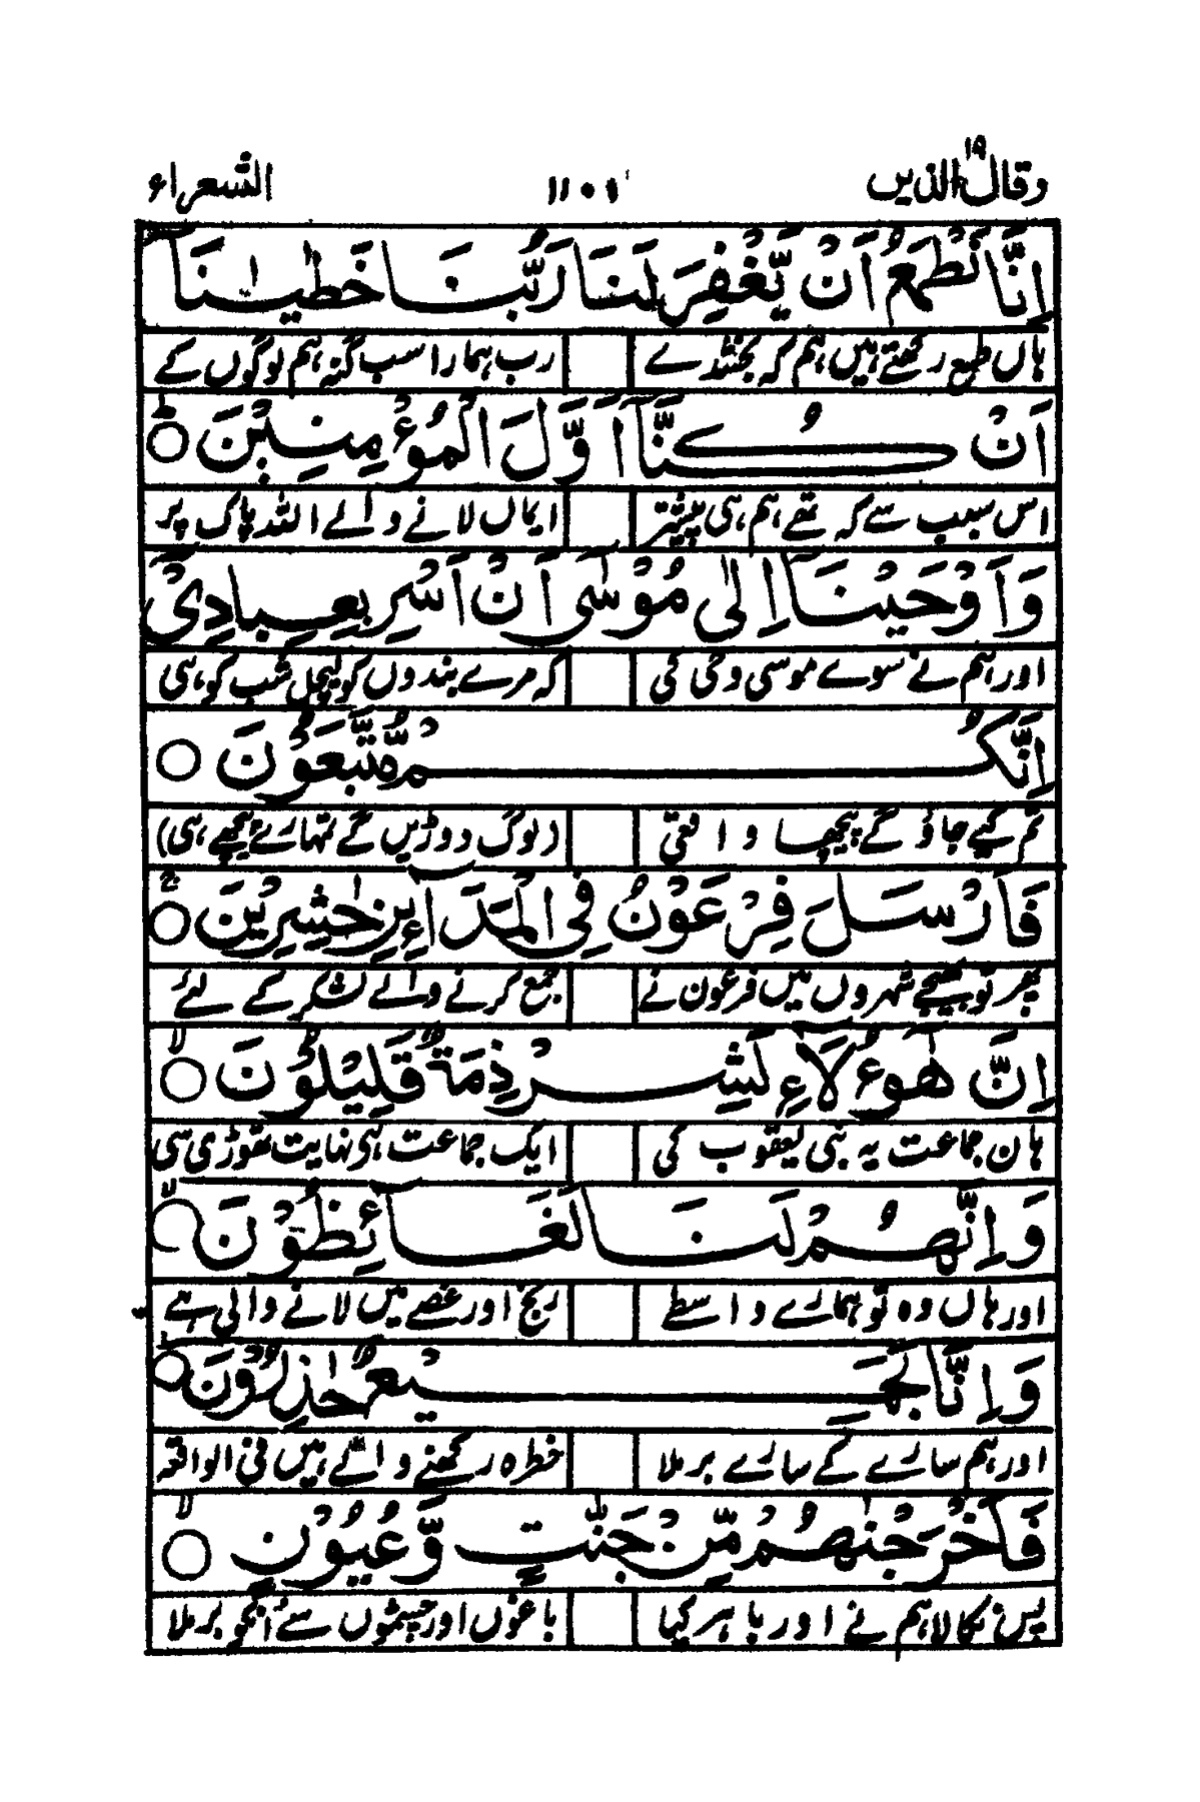 وقال الذین ۱۹ ۱۱۰۱ الشعراء
اِنَّا نَطْمَعُ اَنْ یَّغْفِرَ لَنَا رَبُّنَا خَطٰیٰنَا
ہاں طمع رکھتے ہیں ہم کہ بخشدے رب ہمارا سب گنہ ہم لوگوں کے
اَنْ كُنَّاۤ اَوَّلَ الْمُؤْمِنِیْنَ ؕ
اس سبب سے کہ تھے ہم ہی پیشتر ایماں لانے والے اللہ پاک پر
وَاَوْحَیْنَاۤ اِلٰی مُوْسٰۤی اَنْ اَسْرِ بِعِبَادِیْۤ
اور ہم نے سوے موسی وحی کی کہ مرے بندوں کو لیچل شب کو ہی
اِنَّكُمْ مُّتَّبَعُوْنَ
تم کیے جاؤ گے پیچھا واقعی (لوگ دوڑیں گے تمہارے پیچھے ہی)
فَاَرْسَلَ فِرْعَوْنُ فِی الْمَدَآئِنِ حٰشِرِیْنَ ۚ
پھر تو بھیجے شہروں میں فرعون نے جمع کرنے والے لشکر کے لئے
اِنَّ هٰۤؤُلَآءِ لَشِرْذِمَةٌ قَلِیْلُوْنَ ۙ
ہان جماعت یہ بنی یعقوب کی ایک جماعت ہی نہایت تھوڑی سی
وَاِنَّهُمْ لَنَا لَغَآئِظُوْنَ ۙ
اور ہاں وہ تو ہمارے واسطے رنج اور غصے میں لانے والی ہے
وَاِنَّا لَجَمِیْعٌ حٰذِرُوْنَ ؕ
اور ہم سارے کے سارے برملا خطرہ رکھنے والے ہیں فی الواقعہ
فَاَخْرَجْنٰهُمْ مِّنْ جَنّٰتٍ وَّعُیُوْنٍ ۙ
پس نکالا ہم نے اور باہر کیا باغوں اور چشموں سے انکو برملا